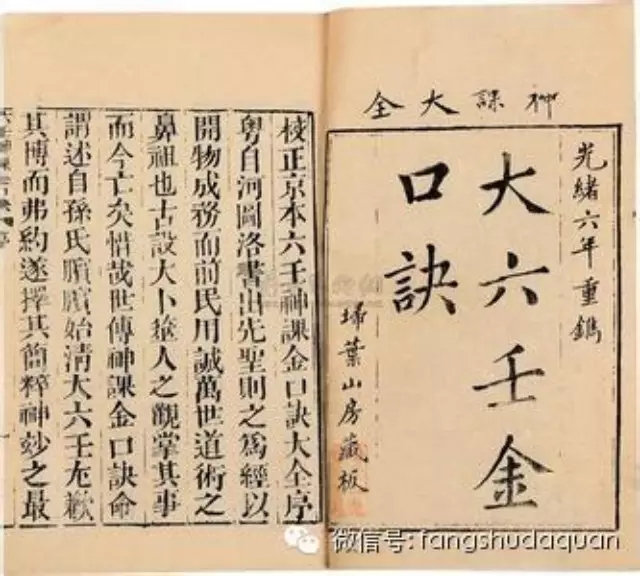 神課大全
光緒六年重鐫
大六壬金
口訣
埽葉山房藏板
校正京本六壬神課金口訣大全序
粵自河圖洛書出先聖則之爲經以
開物成務而前民用誠萬世道術之
鼻祖也古設大卜筮人之觀掌其事
而今亡矣惜哉世傳神課金口訣命
謂述自孫氏臏臏始清大六壬尤歉
其博而弗約遂擇其簡粹神妙之最
微信号: fangshudaquan